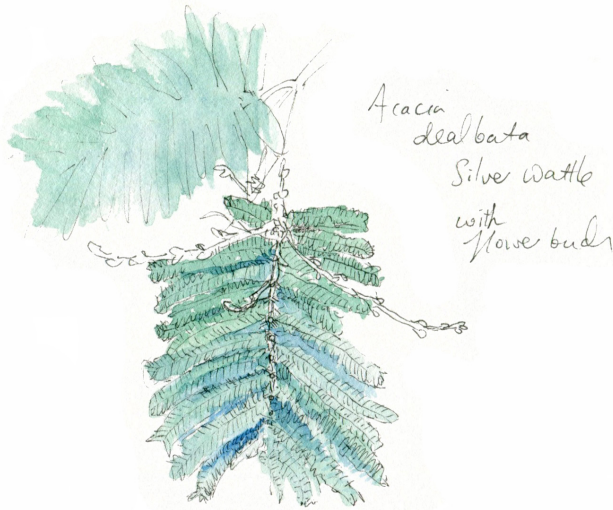 Acacia
dealbata
Silver Wattle
with
flower buds